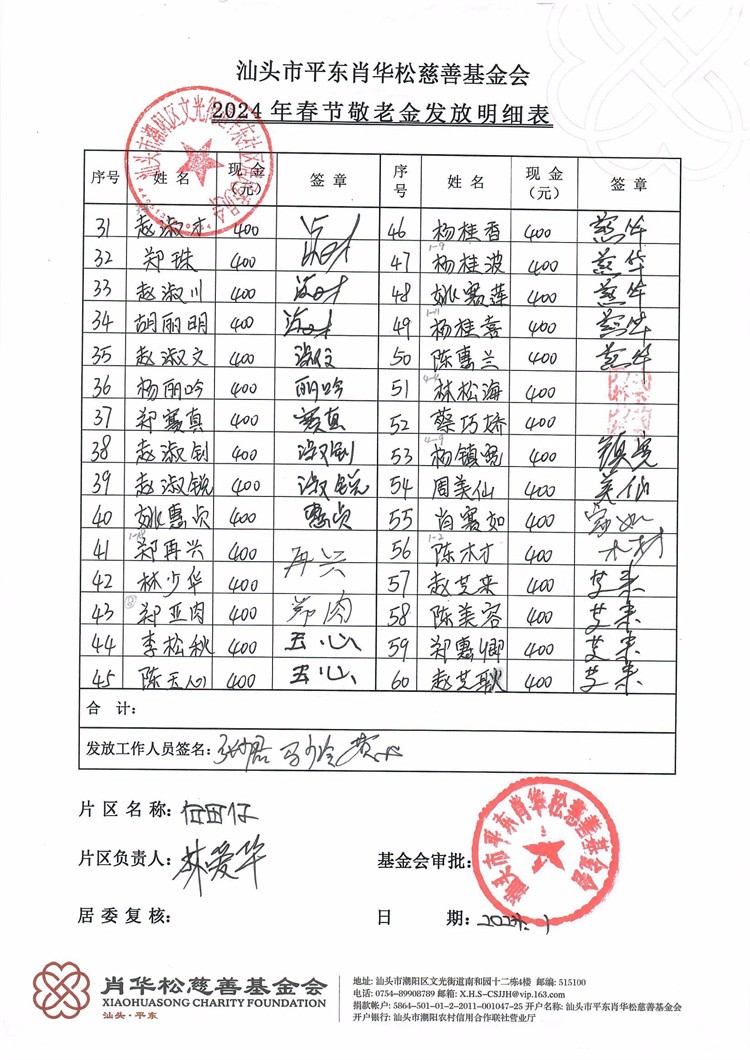 汕头市平东肖华松慈善基金会
2024年春节敬老金发放明细表
序号 姓名 现金(元) 签章 序号 姓名 现金(元) 签章
31 赵淑木 400 46 杨桂香 400 燕华
32 郑珠 400 47 杨桂波 400 燕华
33 赵淑川 400 48 姚惠莲 400 燕华
34 胡丽明 400 49 杨桂喜 400 燕华
35 赵淑文 400 淑文 50 陈惠兰 400 燕华
36 杨丽吟 400 丽吟 51 林松海 400
37 郑赛真 400 赛真 52 蔡巧娇 400
38 赵淑钊 400 淑钊 53 杨镇 400
39 赵淑锐 400 淑锐 54 周美仙 400 美仙
40 姚惠贞 400 惠贞 55 肖赛如 400
41 郑再兴 400 再兴 56 陈木才 400 木材
42 林少华 400 57 赵芝来 400 芝来
43 郑亚肉 400 郑肉 58 陈美容 400 芝来
44 李松秋 400 玉心 59 郑惠卿 400 芝来
45 陈玉心 400 玉心 60 赵芝耿 400 芝来
合计:
发放工作人员签名:
片区名称:
片区负责人: 林爱华
基金会审批:
居委复核:
日期: 2024.1
汕头市平东肖华松慈善基金会
肖华松慈善基金会
XIAOHUASONG CHARITY FOUNDATION
汕头·平东
地址: 汕头市潮阳区文光街道南和园十二栋4楼 邮编: 515100
电话: 0754-89908789 邮箱: X.H.S-CSJJH@vip.163.com
捐款帐户: 5864-501-01-2-2011-001047-25 开户名称: 汕头市平东肖华松慈善基金会
开户银行: 汕头市潮阳农村信用合作联社营业厅